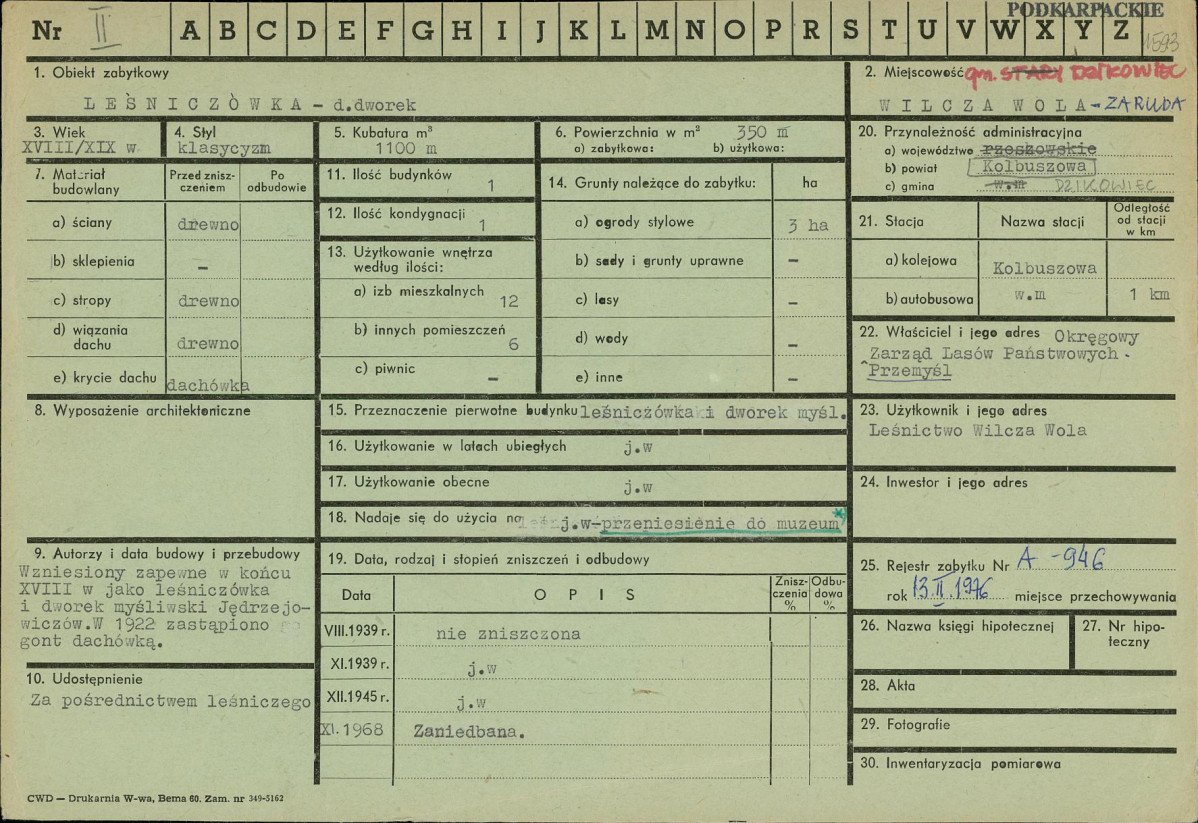 PODKARPACKIE
Nr II A B C D E F G H I J K L M N O P R S T U V W X Y Z 1593
1. Obiekt zabytkowy
LEŚNICZÓWKA - d.dworek
2. Miejscowość gm. STARY DZIKOWIEC
WILCZA WOLA - ZARUDA
3. Wiek
XVIII/XIX w
4. Styl
klasycyzm
5. Kubatura m³
1100 m
6. Powierzchnia w m² 350 m
a) zabytkowa: b) użytkowa:
7. Materiał budowlany
Przed zniszczeniem
Po odbudowie
a) ściany drewno
b) sklepienia –
c) stropy drewno
d) wiązania dachu drewno
e) krycie dachu dachówka
11. Ilość budynków 1
12. Ilość kondygnacji 1
13. Użytkowanie wnętrza
według ilości:
a) izb mieszkalnych 12
b) innych pomieszczeń 6
c) piwnic –
14. Grunty należące do zabytku: ha
a) ogrody stylowe 3 ha
b) sady i grunty uprawne –
c) lasy –
d) wody –
e) inne –
20. Przynależność administracyjna
a) województwo rzeszowskie
b) powiat Kolbuszowa
c) gmina w.m DZIKOWIEC
21. Stacja Nazwa stacji Odległość od stacji w km
a) kolejowa Kolbuszowa
b) autobusowa w.m 1 km
22. Właściciel i jego adres Okręgowy
Zarząd Lasów Państwowych -
Przemyśl
8. Wyposażenie architektoniczne
15. Przeznaczenie pierwotne budynku leśniczówka i dworek myśl.
16. Użytkowanie w latach ubiegłych j.w
17. Użytkowanie obecne j.w
18. Nadaje się do użycia na j.w-przeniesienie do muzeum*
23. Użytkownik i jego adres
Leśnictwo Wilcza Wola
24. Inwestor i jego adres
9. Autorzy i data budowy i przebudowy
Wzniesiony zapewne w końcu
XVIII w jako leśniczówka
i dworek myśliwski Jędrzejo-
wiczów.W 1922 zastąpiono
gont dachówką.
10. Udostępnienie
Za pośrednictwem leśniczego
19. Data, rodzaj i stopień zniszczeń i odbudowy
Data OPIS Zniszczenia % Odbudowa %
VIII.1939 r. nie zniszczona
XI.1939 r. j.w
XII.1945 r. j.w
XI.1968 Zaniedbana.
25. Rejestr zabytku Nr A-946
rok 13.II.1976 miejsce przechowywania
26. Nazwa księgi hipotecznej
27. Nr hipoteczny
28. Akta
29. Fotografie
30. Inwentaryzacja pomiarowa
CWD — Drukarnia W-wa, Bema 60. Zam. nr 349-5162